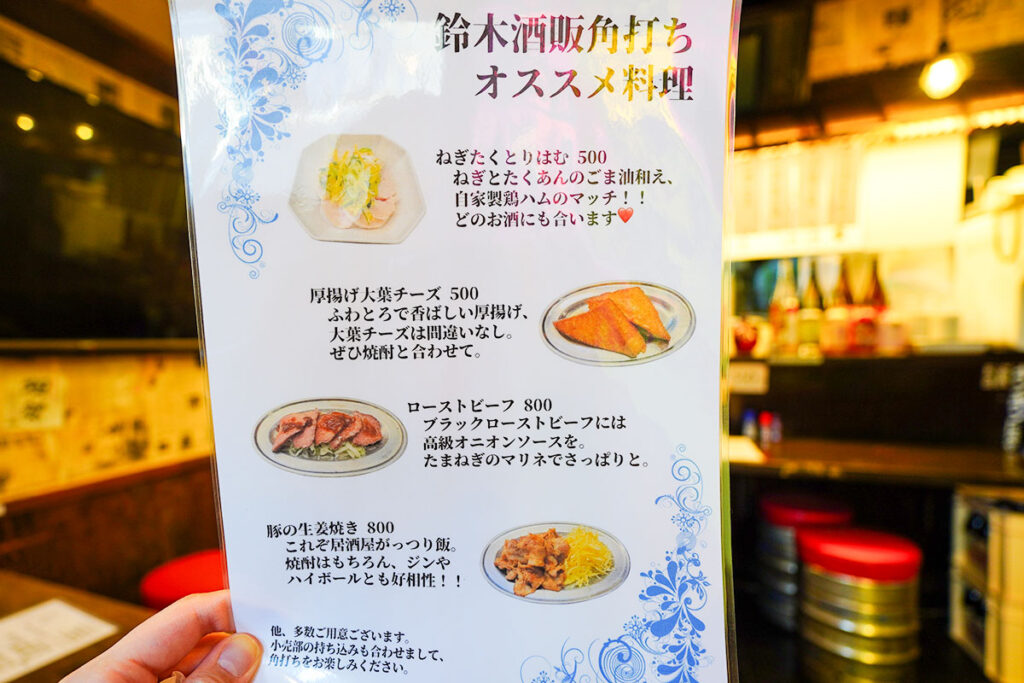 鈴木酒販角打ち
オススメ料理
ねぎたくとりはむ 500
ねぎとたくあんのごま油和え、
自家製鶏ハムのマッチ！！
どのお酒にも合います❤
厚揚げ大葉チーズ 500
ふわとろで香ばしい厚揚げ、
大葉チーズは間違いなし。
ぜひ焼酎と合わせて。
ローストビーフ 800
ブラックローストビーフには
高級オニオンソースを。
たまねぎのマリネでさっぱりと。
豚の生姜焼き 800
これぞ居酒屋がっつり飯。
焼酎はもちろん、ジンや
ハイボールとも好相性！！
他、多数ご用意ございます。
小売部の持ち込みも合わせまして、
角打ちをお楽しみください。